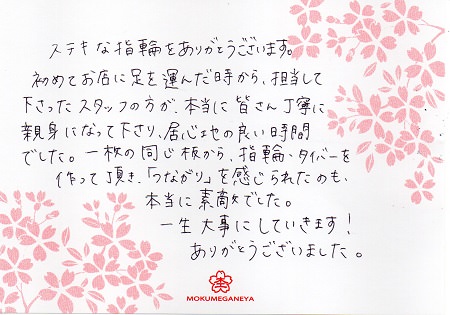 ステキな指輪をありがとうございます。
初めてお店に足を運んだ時から、担当して
下さったスタッフの方が、本当に皆さん丁寧に
親身になって下さり、居心地の良い時間
でした。一枚の同じ板から、指輪・タイバーを
作って頂き、「つながり」を感じられたのも、
本当に素敵でした。
一生大事にしていきます！
ありがとうございました。
MOKUMEGANEYA